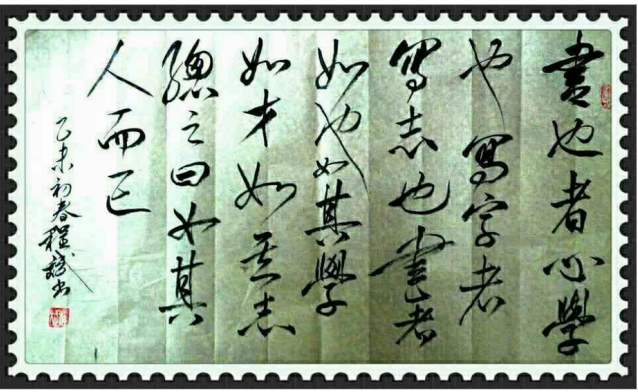 書也者心學
也寫字者
寫志也書者
如也如其學
如才如其志
總之曰如其
人而已
乙未初春程斌书